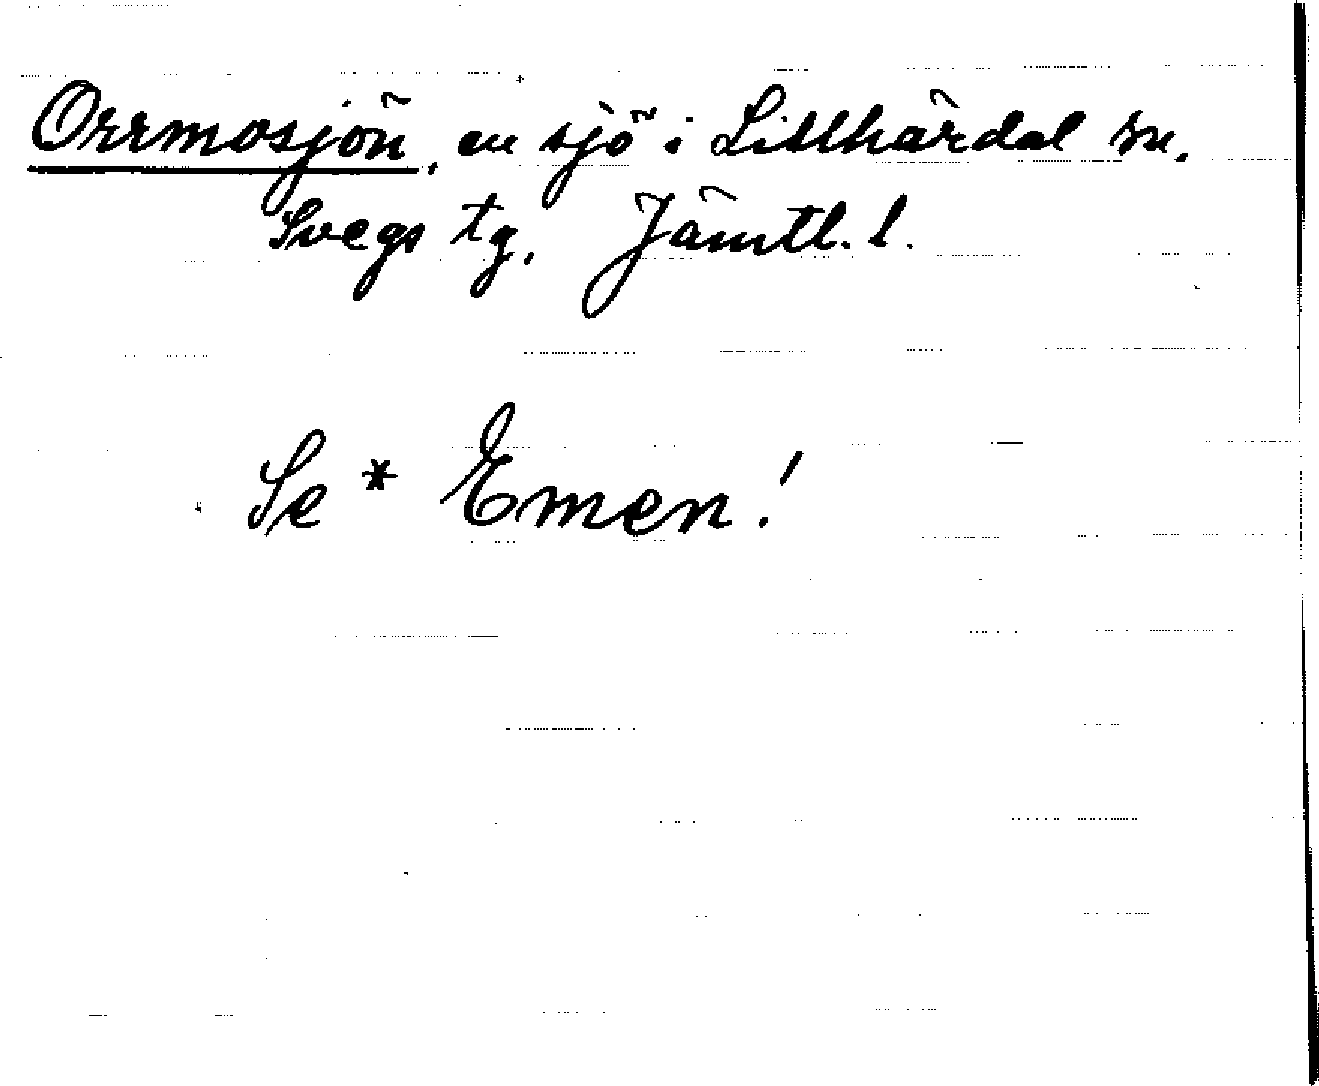 Orrmosjön, en sjö i Lillhärdal sn.
Svegs tg. Jämtl. l.
Se * Emen!